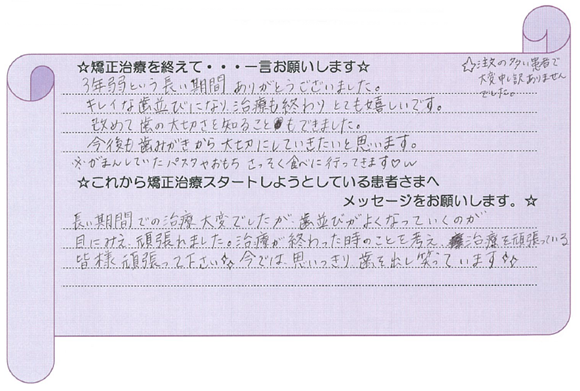 ☆矯正治療を終えて・・・一言お願いします☆
3年弱という長い期間 ありがとうございました。
キレイな歯並びになり、治療も終わり とても嬉しいです。
改めて歯の大切さを知ること もできました。
今後も歯みがきから大切にしていきたいと思います。
※がまんしていたパスタやおもち さっそく食べに行ってきます♡
☆注文の多い患者で
大変申し訳ありません
でした。
☆これから矯正治療スタートしようとしている患者さまへ
メッセージをお願いします。☆
長い期間での治療 大変でしたが 歯並びがよくなっていくのが
目にみえ 頑張れました。治療が終わった時のことを考え 治療を頑張っている
皆様 頑張って下さい☆ 今では 思いっきり 歯を出し笑っています☆